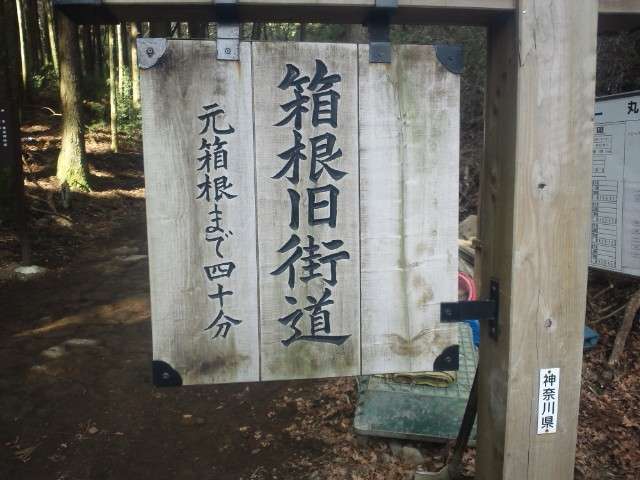 箱根旧街道
元箱根まで四十分
神奈川県
丸